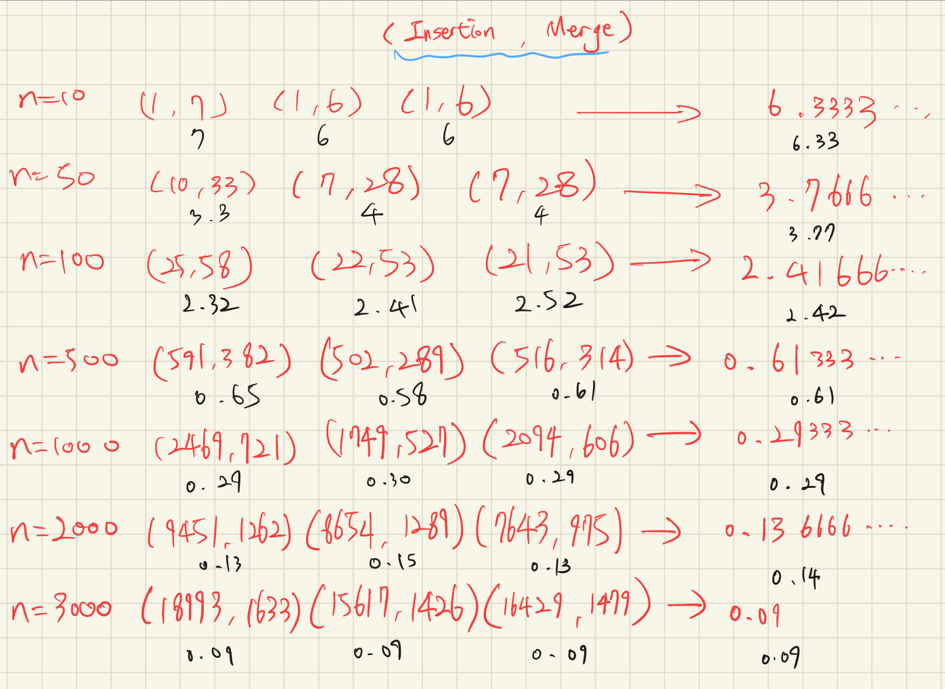 (Insertion , Merge)
n=10 (1,7) (1,6) (1,6) → 6.3333....
7 6 6 6.33
n=50 (10,33) (7,28) (7,28) → 3.7666...
3.3 4 4 3.77
n=100 (25,58) (22,53) (21,53) → 2.41666....
2.32 2.41 2.52 2.42
n=500 (591,382) (502,289) (516,314) → 0.61333...
0.65 0.58 0.61 0.61
n=1000 (2469,721) (1749,527) (2094,606) → 0.29333...
0.29 0.30 0.29 0.29
n=2000 (9451,1262) (8654,1289) (7643,975) → 0.136666....
0.13 0.15 0.13 0.14
n=3000 (18993,1633) (15617,1426) (16429,1479) → 0.09
0.09 0.09 0.09 0.09